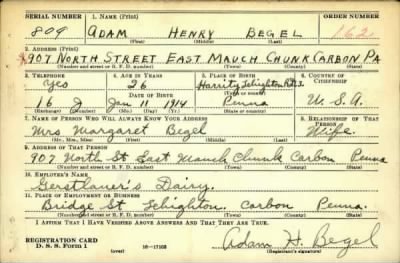 SERIAL NUMBER 1. NAME (Print) ORDER NUMBER
809 ADAM HENRY BEGEL 162
(First) (Middle) (Last)
2. ADDRESS (Print)
907 NORTH STREET EAST MAUCH CHUNK CARBON PA
(Number and street or R. F. D. number) (Town) (County) (State)
3. TELEPHONE 4. AGE IN YEARS 5. PLACE OF BIRTH 6. COUNTRY OF CITIZENSHIP
Yes 26 Harrity, Lehighton Rd 3
(Town or county)
DATE OF BIRTH
16 J Jan 11 1914 Penna U.S.A.
(Exchange) (Number) (Mo.) (Day) (Yr.) (State or country)
7. NAME OF PERSON WHO WILL ALWAYS KNOW YOUR ADDRESS 8. RELATIONSHIP OF THAT PERSON
Mrs Margaret Begel Wife
(Mr., Mrs., Miss) (First) (Middle) (Last)
9. ADDRESS OF THAT PERSON
907 North St East Mauch Chunk Carbon Penna
(Number and street or R. F. D. number) (Town) (County) (State)
10. EMPLOYER'S NAME
Gerstlauer's Dairy.
11. PLACE OF EMPLOYMENT OR BUSINESS
Bridge St Lehighton. Carbon Penna.
(Number and street or R. F. D. number) (Town) (County) (State)
I AFFIRM THAT I HAVE VERIFIED ABOVE ANSWERS AND THAT THEY ARE TRUE.
REGISTRATION CARD
D. S. S. Form 1 (over) 16—17105 Adam H. Begel
(Registrant's signature)